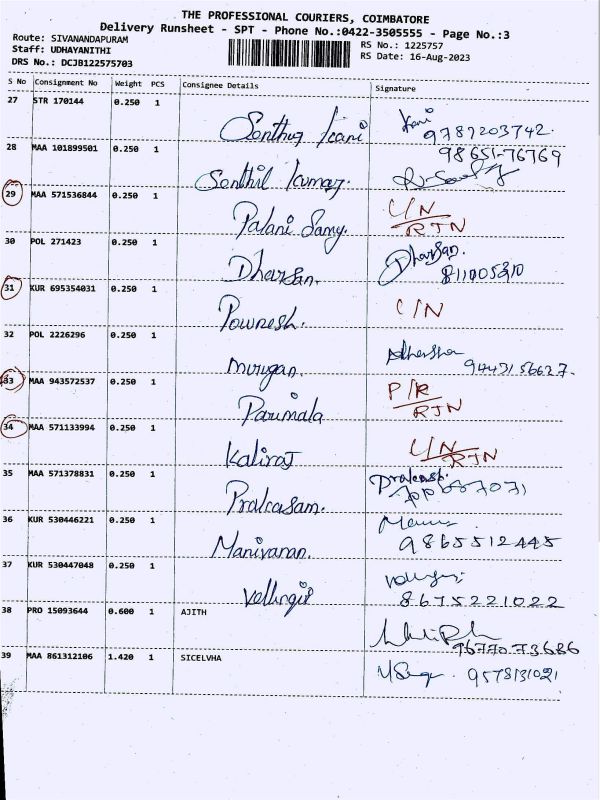 THE PROFESSIONAL COURIERS, COIMBATORE
Delivery Runsheet - SPT - Phone No.:0422-3505555 - Page No.:3
Route: SIVANANDAPURAM RS No.: 1225757
Staff: UDHAYANITHI RS Date: 16-Aug-2023
DRS No.: DCJB122575703
S No Consignment No Weight PCS Consignee Details Signature
27 STR 170144 0.250 1 Kani
9787203742
28 MAA 101899501 0.250 1 98651-76769
Senthil Kumar
29 MAA 571536844 0.250 1 C/N
Palani Samy. RTN
30 POL 271423 0.250 1 Dharsan.
Dharsan.
31 KUR 695354031 0.250 1 C/N
Pownesh.
32 POL 2226296 0.250 1
Murugan. 9443156627.
33 MAA 943572537 0.250 1 P/R
Parimala RTN
34 MAA 571133994 0.250 1 C/N
Kaliraj RTN
35 MAA 571378831 0.250 1
Prakasam.
36 KUR 530446221 0.250 1
Manivanan. 9865512445
37 KUR 530447048 0.250 1
Vellingiri 8675221022
38 PRO 15093644 0.600 1 AJITH
9677073686
39 MAA 861312106 1.420 1 SICELVHA 9578131021